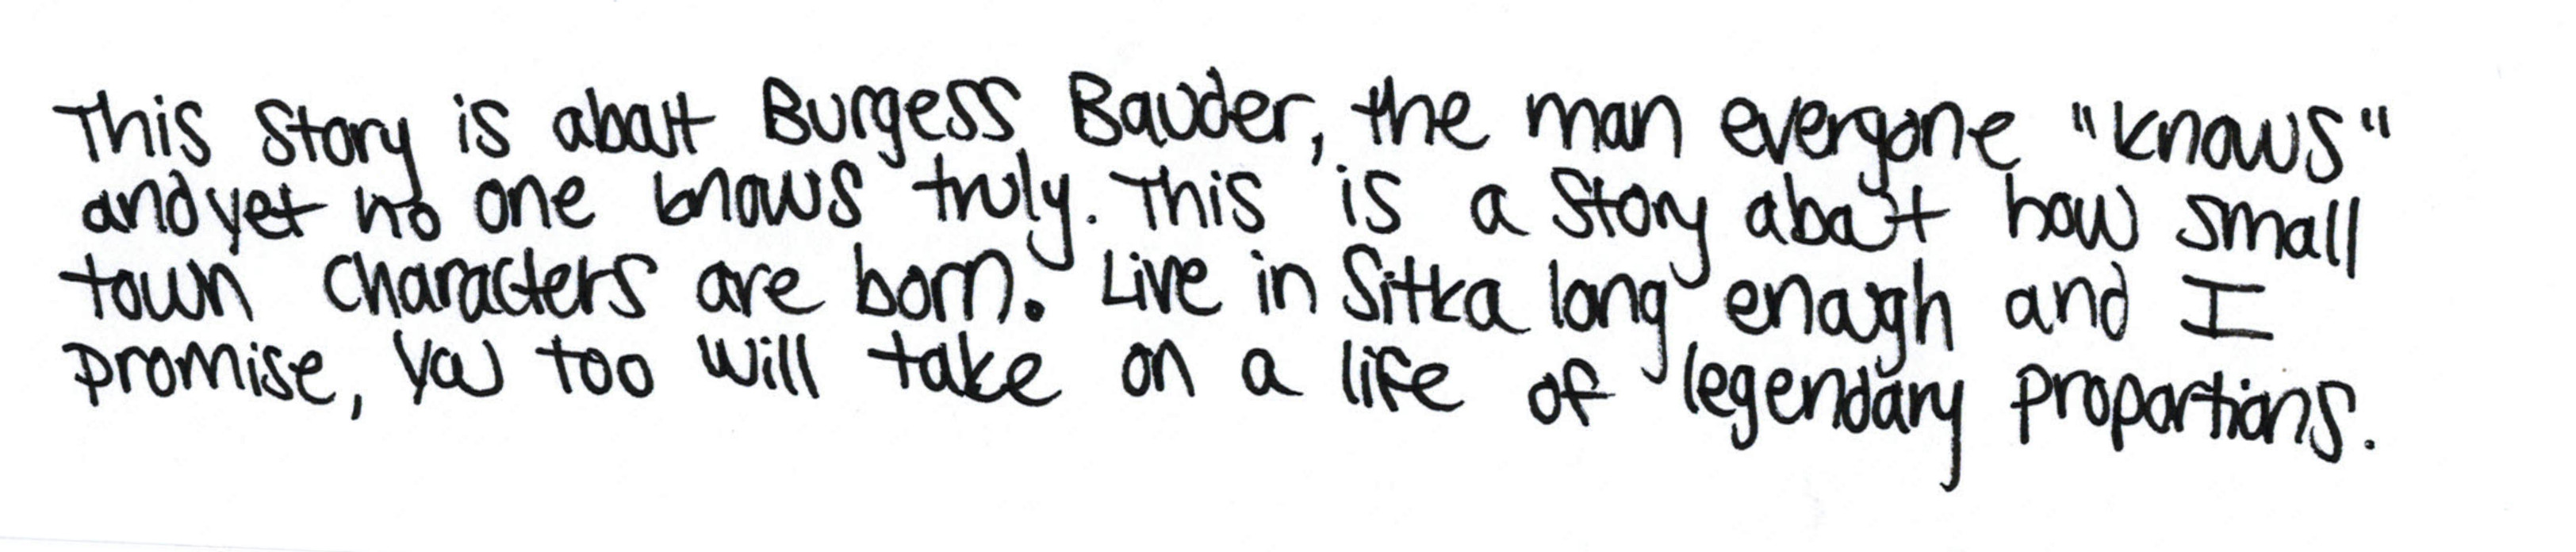 This Story is about Burgess Bauder, the man everyone "knows"
and yet no one knows truly. This is a Story about how small
town characters are born. Live in Sitka long enough and I
promise, you too will take on a life of legendary proportions.